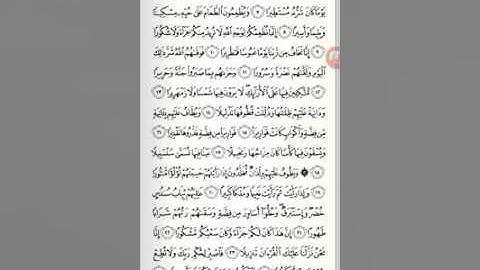 يَوْمًا كَانَ شَرُّهُۥ مُسْتَطِيرًا ٧ وَيُطْعِمُونَ ٱلطَّعَامَ عَلَىٰ حُبِّهِۦ مِسْكِينًا
وَيَتِيمًا وَأَسِيرًا ٨ إِنَّمَا نُطْعِمُكُمْ لِوَجْهِ ٱللَّهِ لَا نُرِيدُ مِنكُمْ جَزَآءً وَلَا شُكُورًا
٩ إِنَّا نَخَافُ مِن رَّبِّنَا يَوْمًا عَبُوسًا قَمْطَرِيرًا ١٠ فَوَقَىٰهُمُ ٱللَّهُ شَرَّ ذَٰلِكَ
ٱلْيَوْمِ وَلَقَّىٰهُمْ نَضْرَةً وَسُرُورًا ١١ وَجَزَىٰهُم بِمَا صَبَرُوا۟ جَنَّةً وَحَرِيرًا
١٢ مُّتَّكِـِٔينَ فِيهَا عَلَى ٱلْأَرَآئِكِ لَا يَرَوْنَ فِيهَا شَمْسًا وَلَا زَمْهَرِيرًا ١٣
وَدَانِيَةً عَلَيْهِمْ ظِلَٰلُهَا وَذُلِّلَتْ قُطُوفُهَا تَذْلِيلًا ١٤ وَيُطَافُ عَلَيْهِم بِـَٔانِيَةٍ
مِّن فِضَّةٍ وَأَكْوَابٍ كَانَتْ قَوَارِيرَا۠ ١٥ قَوَارِيرَا۟ مِن فِضَّةٍ قَدَّرُوهَا تَقْدِيرًا ١٦
وَيُسْقَوْنَ فِيهَا كَأْسًا كَانَ مِزَاجُهَا زَنجَبِيلًا ١٧ عَيْنًا فِيهَا تُسَمَّىٰ سَلْسَبِيلًا
١٨ ۞ وَيَطُوفُ عَلَيْهِمْ وِلْدَٰنٌ مُّخَلَّدُونَ إِذَا رَأَيْتَهُمْ حَسِبْتَهُمْ لُؤْلُؤًا مَّنثُورًا
١٩ وَإِذَا رَأَيْتَ ثَمَّ رَأَيْتَ نَعِيمًا وَمُلْكًا كَبِيرًا ٢٠ عَٰلِيَهُمْ ثِيَابُ سُندُسٍ
خُضْرٌ وَإِسْتَبْرَقٌ وَحُلُّوٓا۟ أَسَاوِرَ مِن فِضَّةٍ وَسَقَىٰهُمْ رَبُّهُمْ شَرَابًا
طَهُورًا ٢١ إِنَّ هَٰذَا كَانَ لَكُمْ جَزَآءً وَكَانَ سَعْيُكُم مَّشْكُورًا ٢٢ إِنَّا
نَحْنُ نَزَّلْنَا عَلَيْكَ ٱلْقُرْءَانَ تَنزِيلًا ٢٣ فَٱصْبِرْ لِحُكْمِ رَبِّكَ وَلَا تُطِعْ